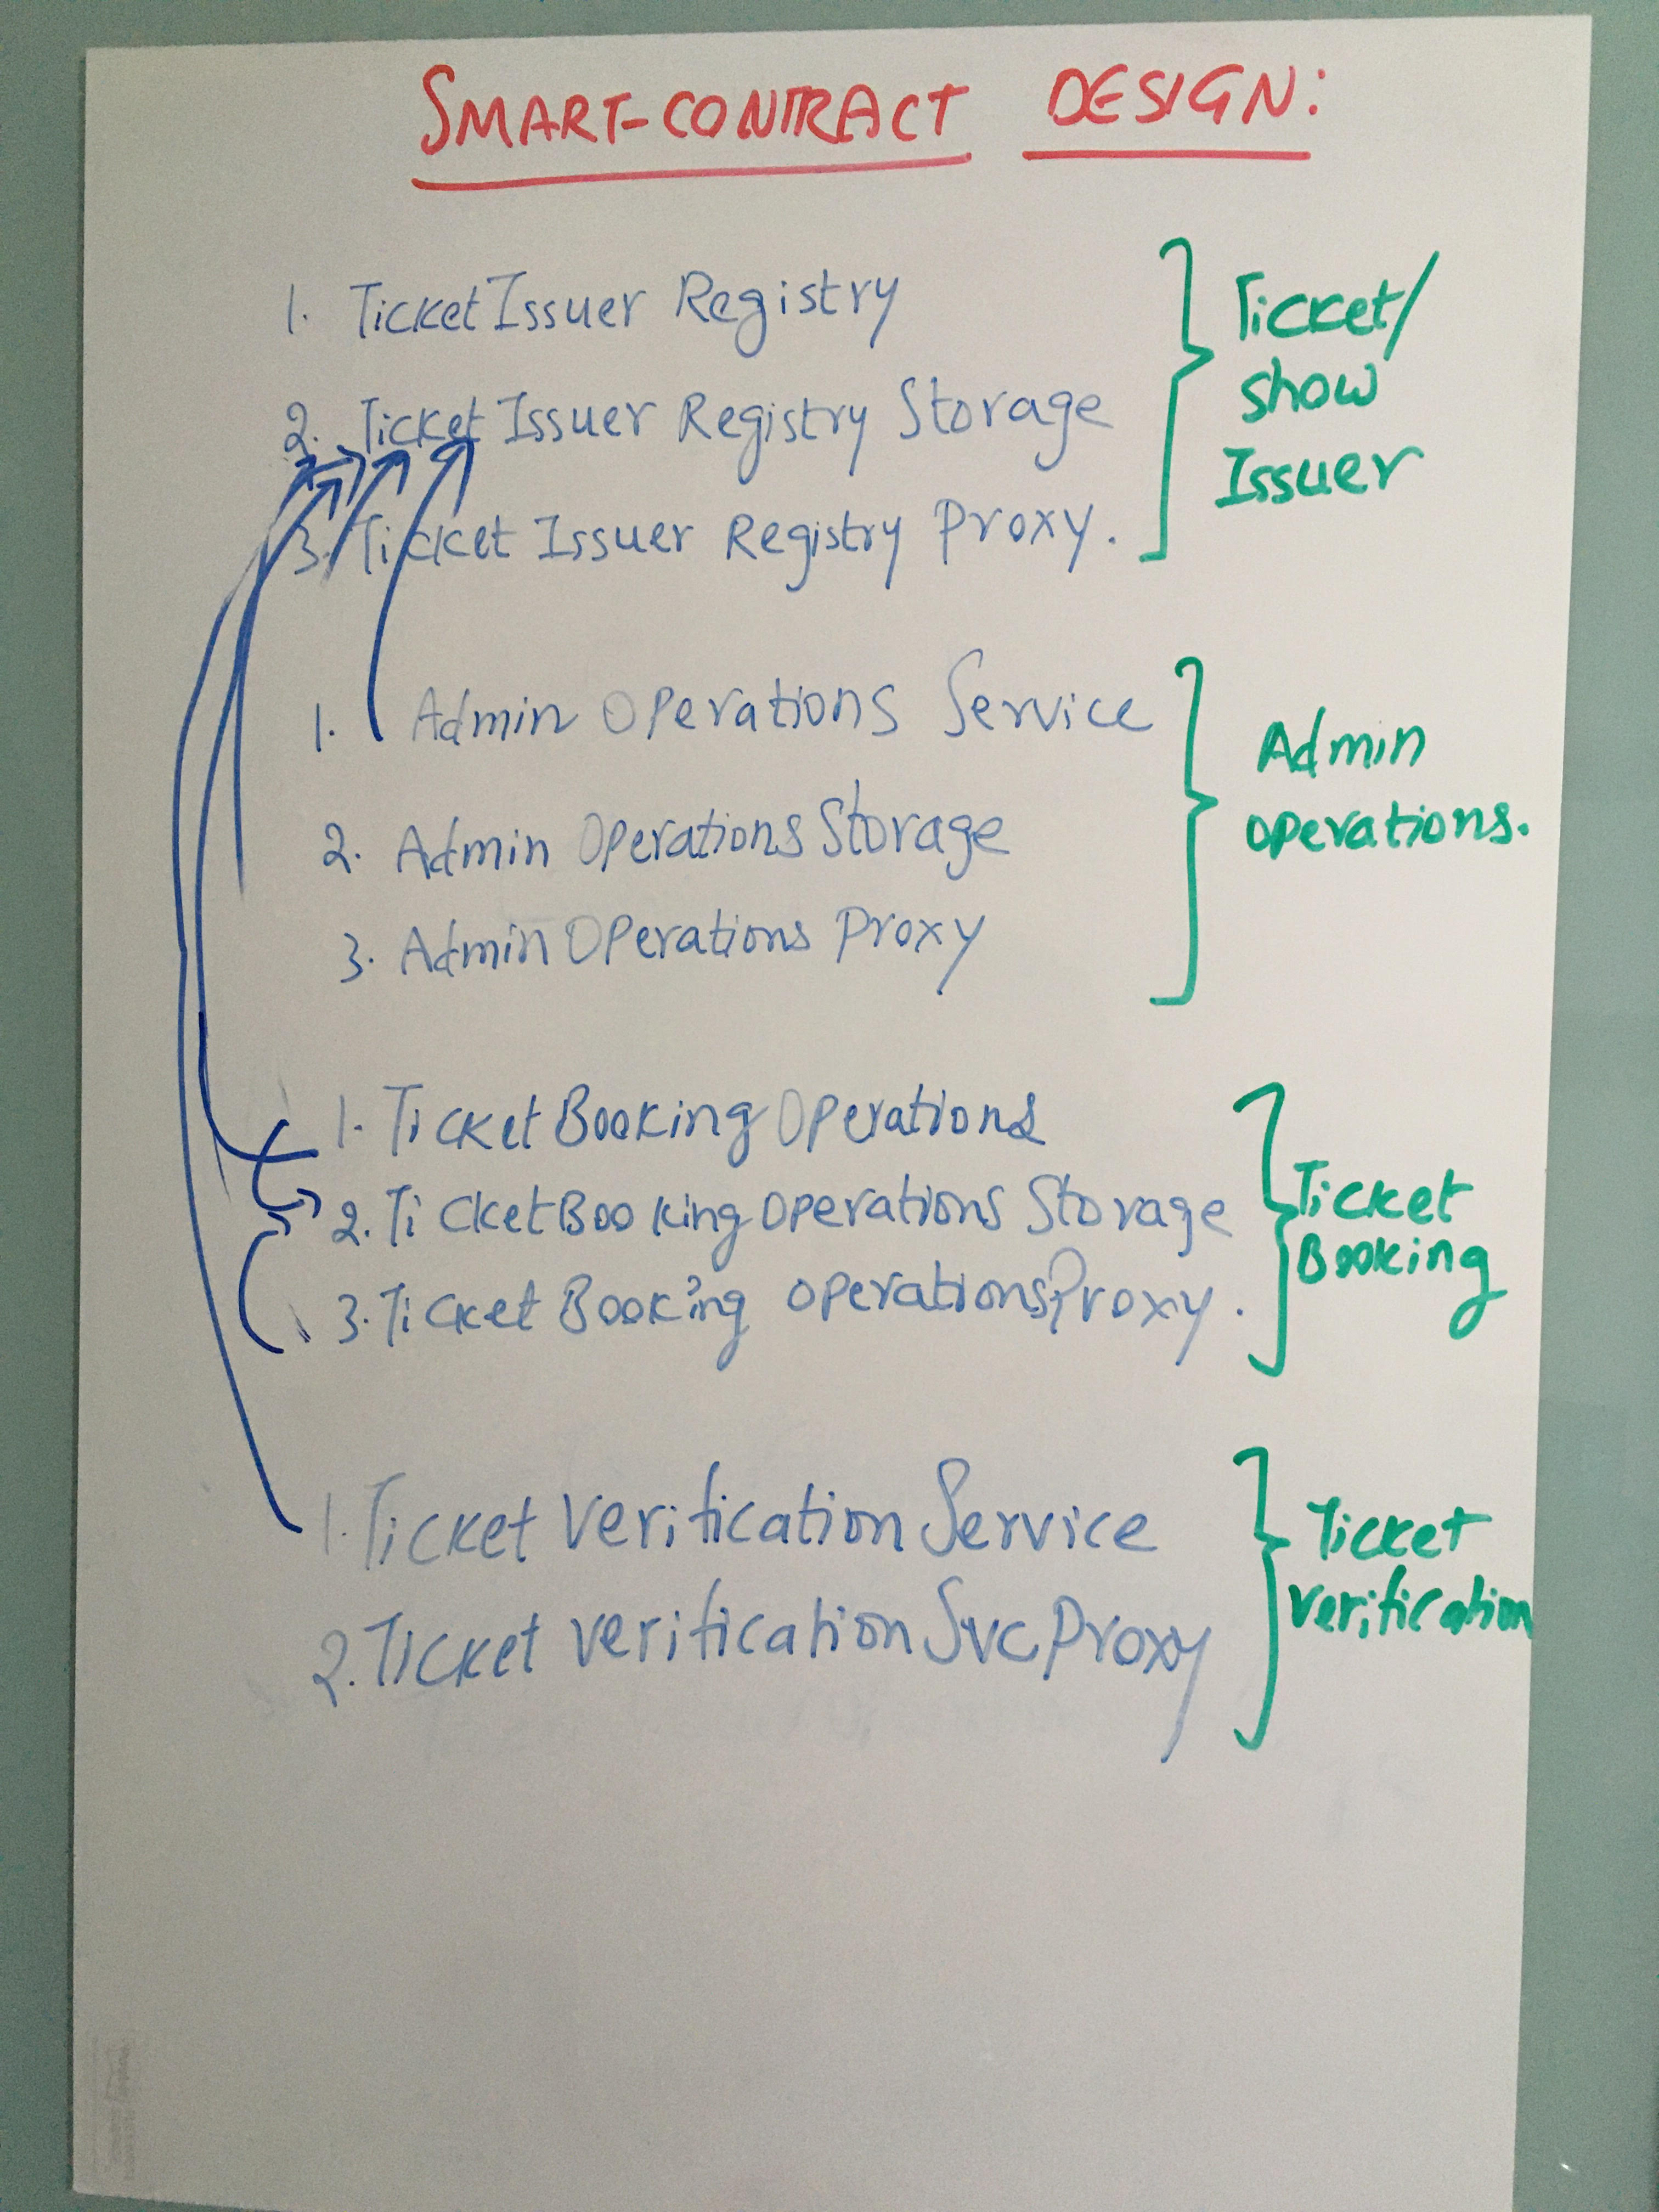 SMART-CONTRACT DESIGN:
1. TicketIssuer Registry
2. Ticket Issuer Registry Storage
3. Ticket Issuer Registry Proxy.
Ticket/
show
Issuer
1. Admin Operations Service
2. Admin Operations Storage
3. Admin Operations Proxy
Admin
operations.
1. TicketBooking Operations
2. TicketBooking Operations Storage
3. Ticket Booking operationsProxy.
Ticket
Booking
1. Ticket VerificationService
2. Ticket verificationSvcProxy
Ticket
verification